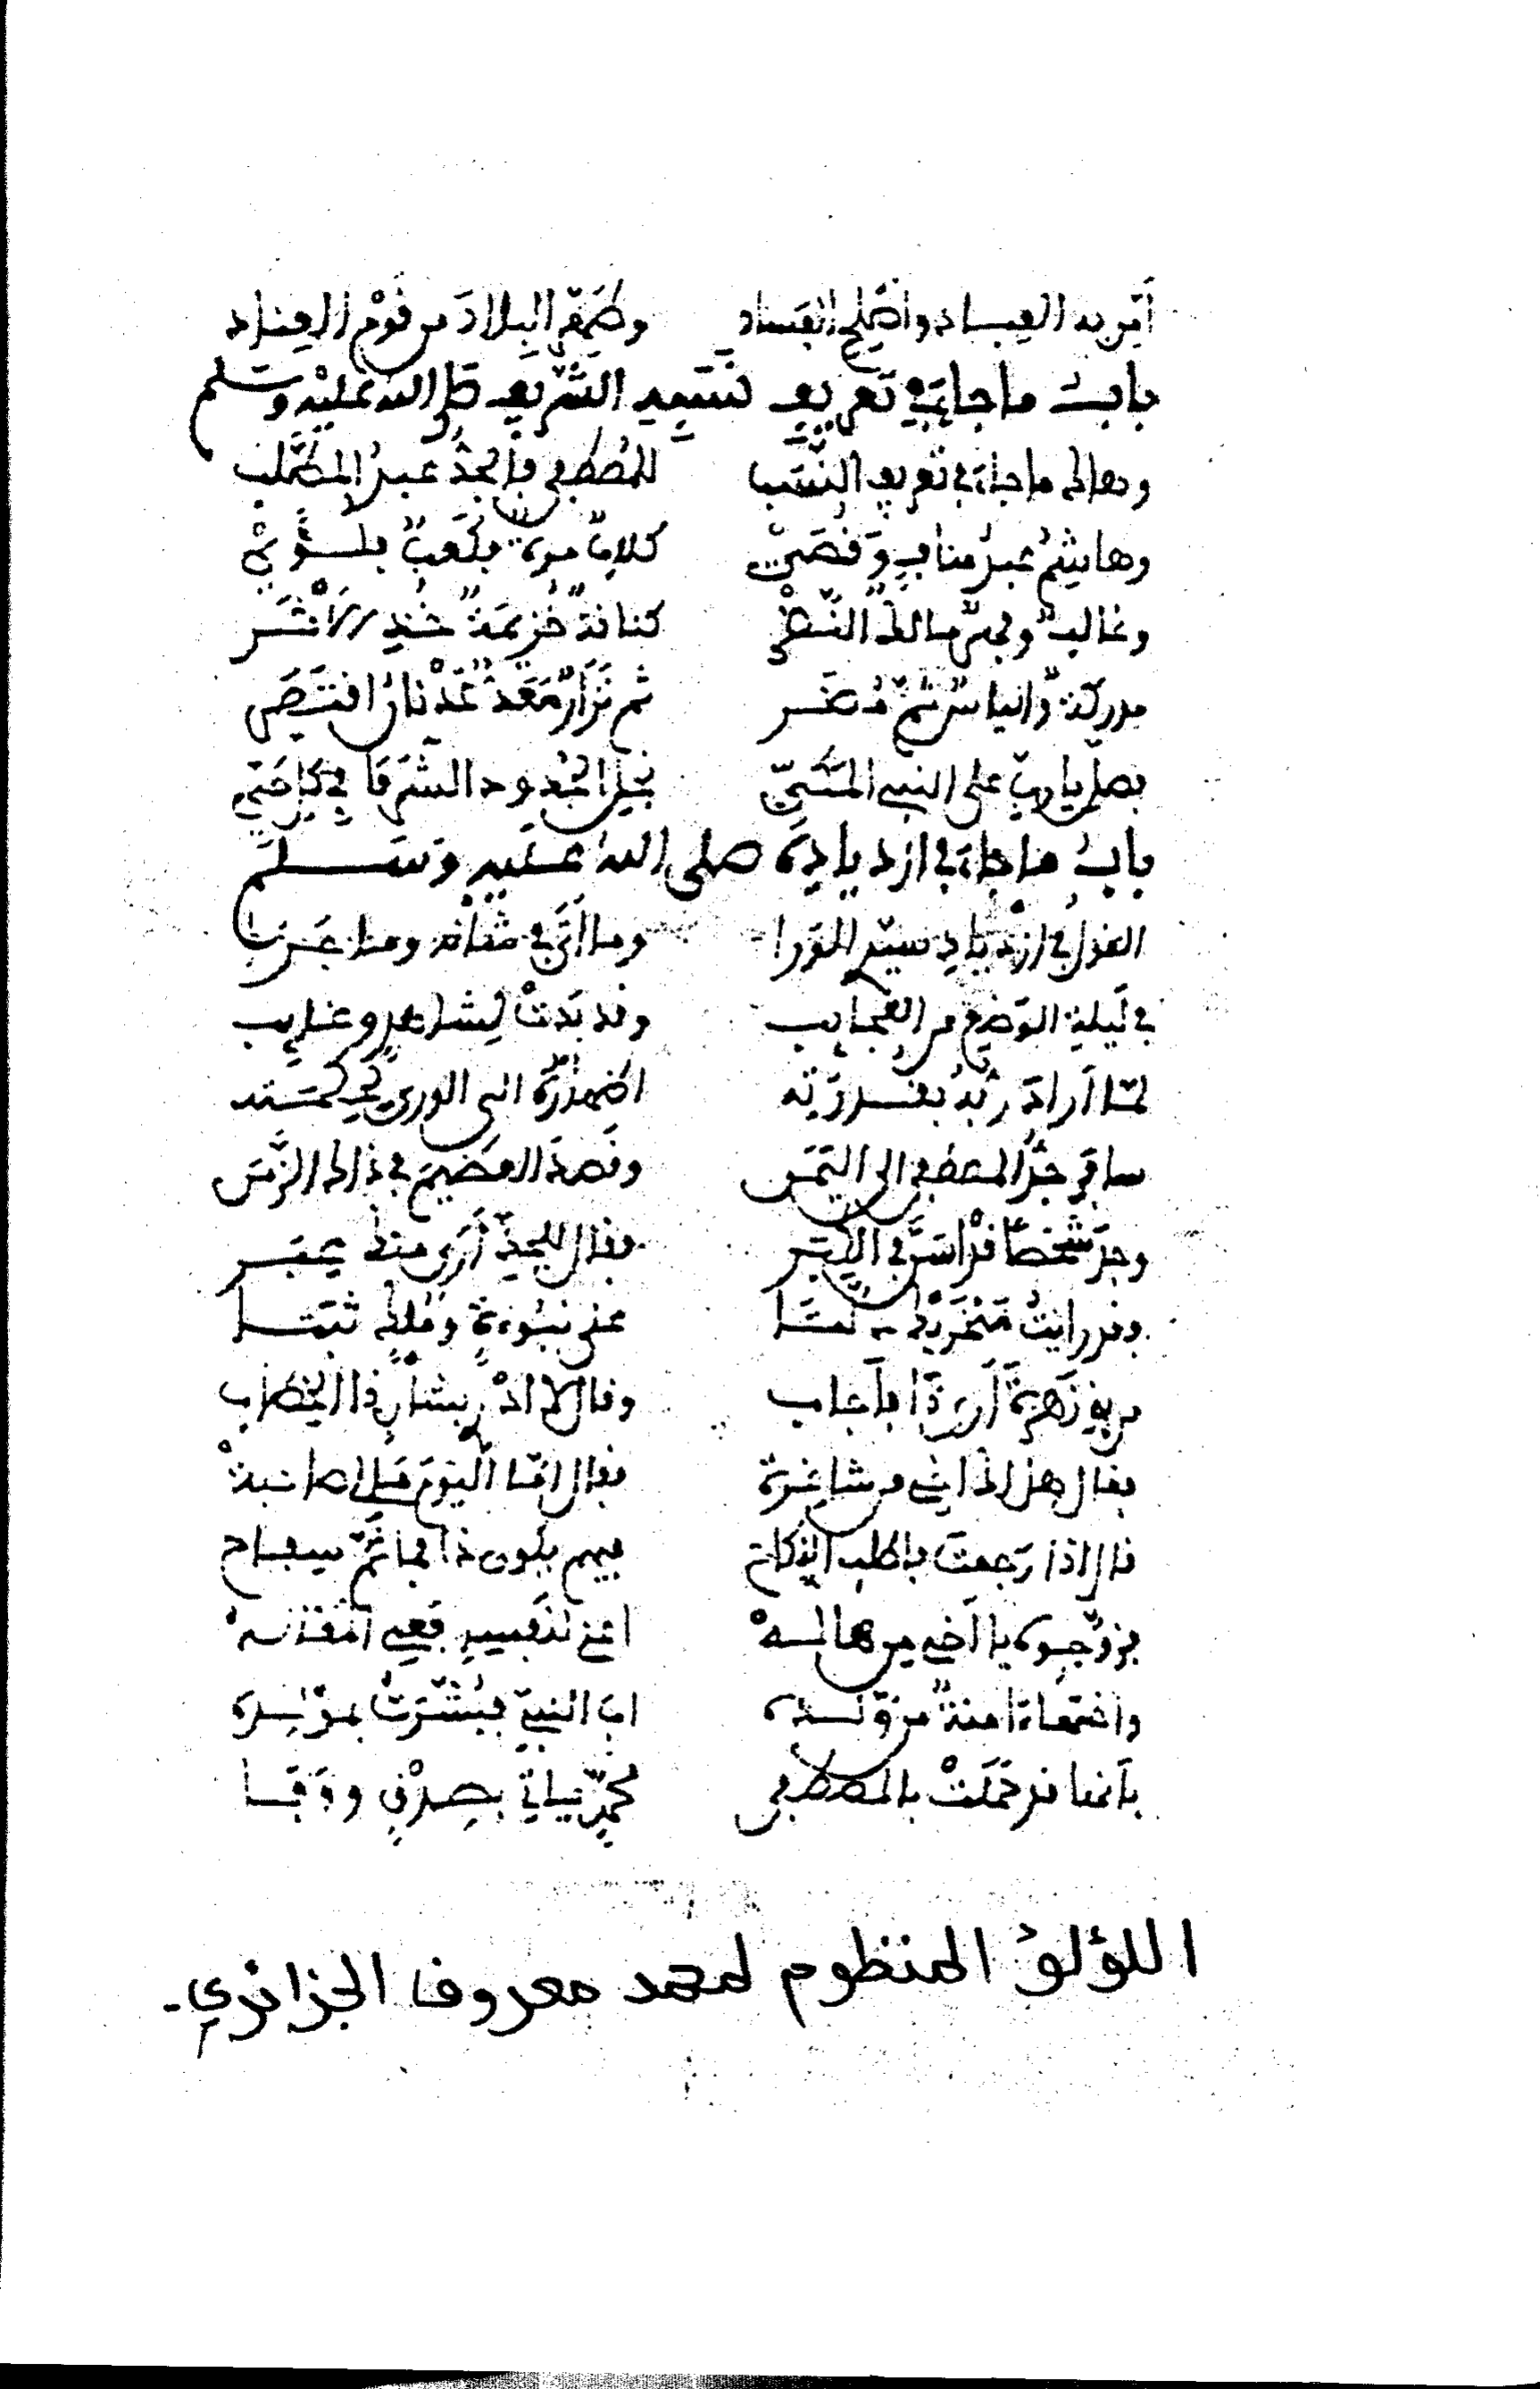 أمن به العباد وأصلح الفساد وطهر البلاد من قوم العناد
باب ما جاء في تعريف نسبه الشريف صلى الله عليه وسلم
وهاك ما جاء في تعريف النسب للمصطفى فالجد عبد المطلب
وهاشم عبد مناف وقصي كلاب مرة فكعب فلؤي
وغالب وفهر مالك النضر كنانة خزيمة
مدركة والياس ثم مضر ثم نزار معد عدنان اقتصى
فصل يا رب على النبي نجل الجدود الشرفا في كل حي
باب ما جاء في ازدياده صلى الله عليه وسلم
القول في ازدياد سيد الورا وما أتى في شأنه وما جرى
في ليلة الوضع من العجايب وقد بدت لشاهد وغايب
لما أراد ربه بقدرته اظهاره الى الورى
سافر جد المصطفى الى اليمن وقصة العضيم في ذاك الزمن
وجد شخصا قد اسن في الكبر فقال للجد أرى منك
وقد رايت منخريك عن نبوءة وملك ثبتا
من بني زهرة أرى ذا فأجاب وقال لا ادر بشأن ذا الخطاب
فقال هل لك اخي من شاغرة فقال اما اليوم صاحبة
قال اذا رجعت فاطلب النكاح فيهم يكون ذا فما ثم سفاح
فزوجوه يا أخي من هالة اعني لتفسير فعي المقالة
امنة من ولده اب النبي فبشرت بمولده
بأنها قد حملت بالمصطفى محمد يأتي بصدق ووفا
اللؤلؤ المنظوم لمحمد معروف الجزائري.